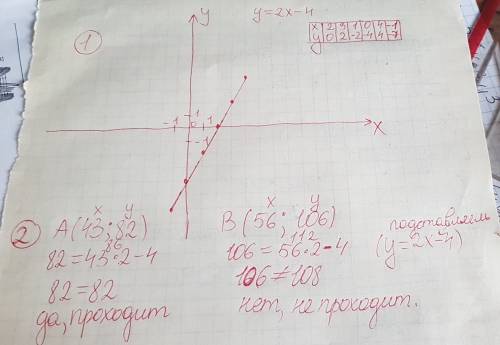 y=2x-4
① y
x 2 3 1 0 4 -1
y 0 2 -2 -4 4 -7
1
-1 0 1
-1
x
② x y
A(43; 82)
86
82=43·2-4
82=82
да, проходит
x y
B(56; 106)
112
106=56·2-4
106≠108
нет, не проходит.
(y=2x-4)